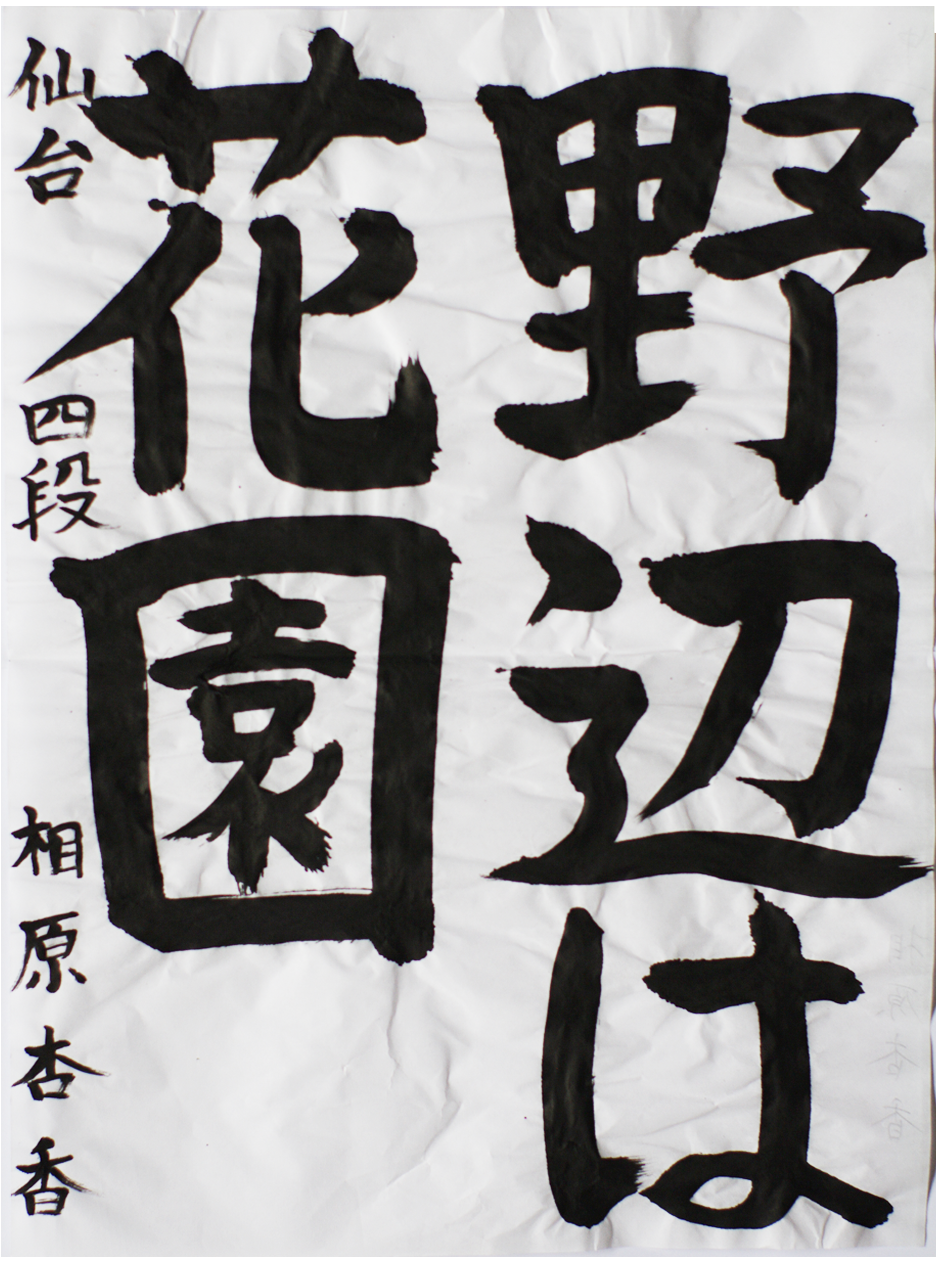 野辺は
花園
仙台 四段 相原杏香